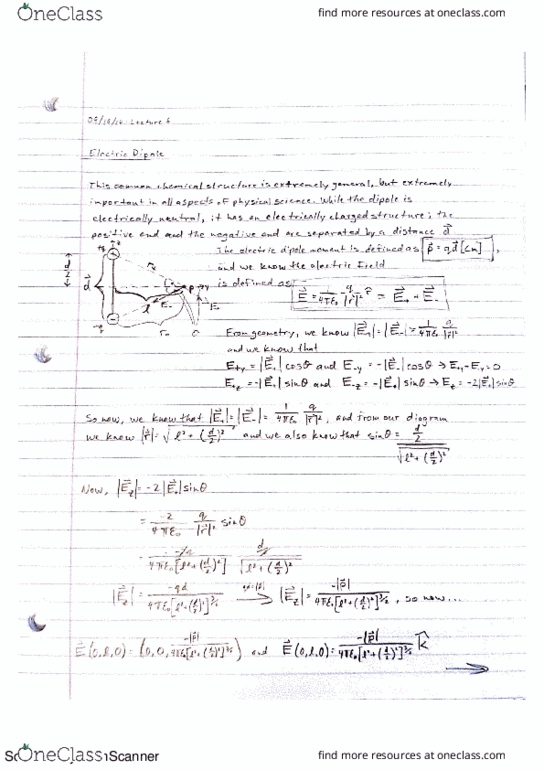 OneClass
find more resources at oneclass.com
Lecture 6
Electric Dipole
This common chemical structure is extremely general, but extremely
important in all aspects of physical science. While the dipole is
electrically neutral, it has an electrically charged structure; the
positive end and the negative end are separated by a distance d⃗
The electric dipole moment is defined as p⃗ = qd⃗ [Cm],
and we know the electric field
is defined as: E⃗ = 1/4πε₀ q/|r⃗|² r̂ = E⃗₊ + E⃗₋
From geometry, we know |E⃗₊| = |E⃗₋| = 1/4πε₀ q/|r⃗|²
and we know that
E₊y = |E⃗₊| cosθ and E₋y = -|E⃗₋| cosθ → E₊y - E₋y = 0
E₊z = -|E⃗₊| sinθ and E₋z = -|E⃗₊| sinθ → Ez = -2|E⃗₊| sinθ
So now, we know that |E⃗₊| = |E⃗₋| = 1/4πε₀ q/|r⃗|², and from our diagram
we know |r⃗| = √(l² + (d/2)²) and we also know that sinθ = (d/2)/√(l² + (d/2)²)
Now, |E⃗z| = -2|E⃗₊| sinθ
= -2/4πε₀ q/|r⃗|² sinθ
= -2q/4πε₀[l² + (d/2)²] (d/2)/√(l² + (d/2)²)
|E⃗z| = -qd/4πε₀[l² + (d/2)²]^(3/2) → |E⃗z| = -|p⃗|/4πε₀[l² + (d/2)²]^(3/2), so now...
E⃗(0,l,0) = (0, 0, -|p⃗|/4πε₀[l² + (d/2)²]^(3/2)) and E⃗(0,l,0) = -|p⃗|/4πε₀[l² + (d/2)²]^(3/2) k̂
OneClass
Scanner
find more resources at oneclass.com